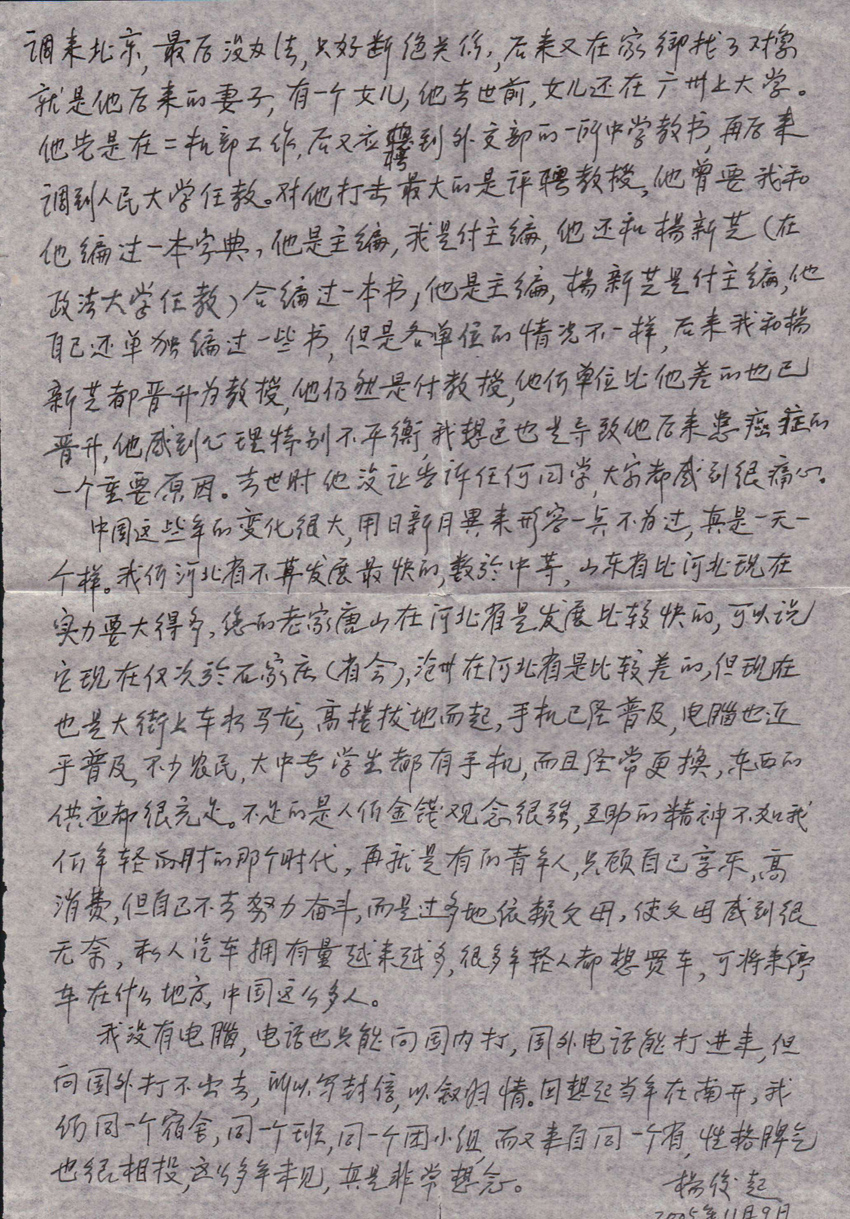 调来北京，最后没办法，只好断绝关系，后来又在家乡找了对像
就是他后来的妻子，有一个女儿，他去世前，女儿还在广州上大学。
他先是在二机部工作，后又应聘到外交部的一所中学教书，再后来
调到人民大学任教。对他打击最大的是评聘教授，他曾要我和
他编过一本字典，他是主编，我是付主编，他还和杨新芝（在
政法大学任教）合编过一本书，他是主编，杨新芝是付主编，他
自己还单独编过一些书，但是各单位的情况不一样，后来我和杨
新芝都晋升为教授，他仍然是付教授，他们单位比他差的也已
晋升，他感到心理特别不平衡，我想这也是导致他后来患癌症的
一个重要原因。去世时他没让告诉任何同学，大家都感到很痛心。
中国这些年的变化很大，用日新月異来形容一点不为过，真是一天一
个样。我们河北省不算发展最快的，数於中等，山东省比河北现在
实力要大得多，您的老家唐山在河北省是发展比较快的，可以说
它现在仅次於石家庄（省会），沧州在河北省是比较差的，但现在
也是大街上车水马龙，高楼拔地而起，手机已经普及，电腦也近
乎普及，不少农民，大中专学生都有手机，而且经常更换，东西的
供应都很充足。不足的是人们金钱观念很强，互助的精神不如我
们年轻时的那个时代，再就是有的青年人，只顾自己享乐，高
消费，但自己不去努力奋斗，而是过多地依赖父母，使父母感到很
无奈，私人汽车拥有量越来越多，很多年轻人都想买车，可将来停
车在什么地方，中国这么多人。
我没有电腦，电话也只能向国内打，国外电话能打进来，但
向国外打不出去，所以写封信，以叙旧情。回想起当年在南开，我
们同一个宿舍，同一个班，同一个团小组，而又来自同一个省，性格脾气
也很相投，这么多年未见，真是非常想念。
杨俊起
2005年11月9日